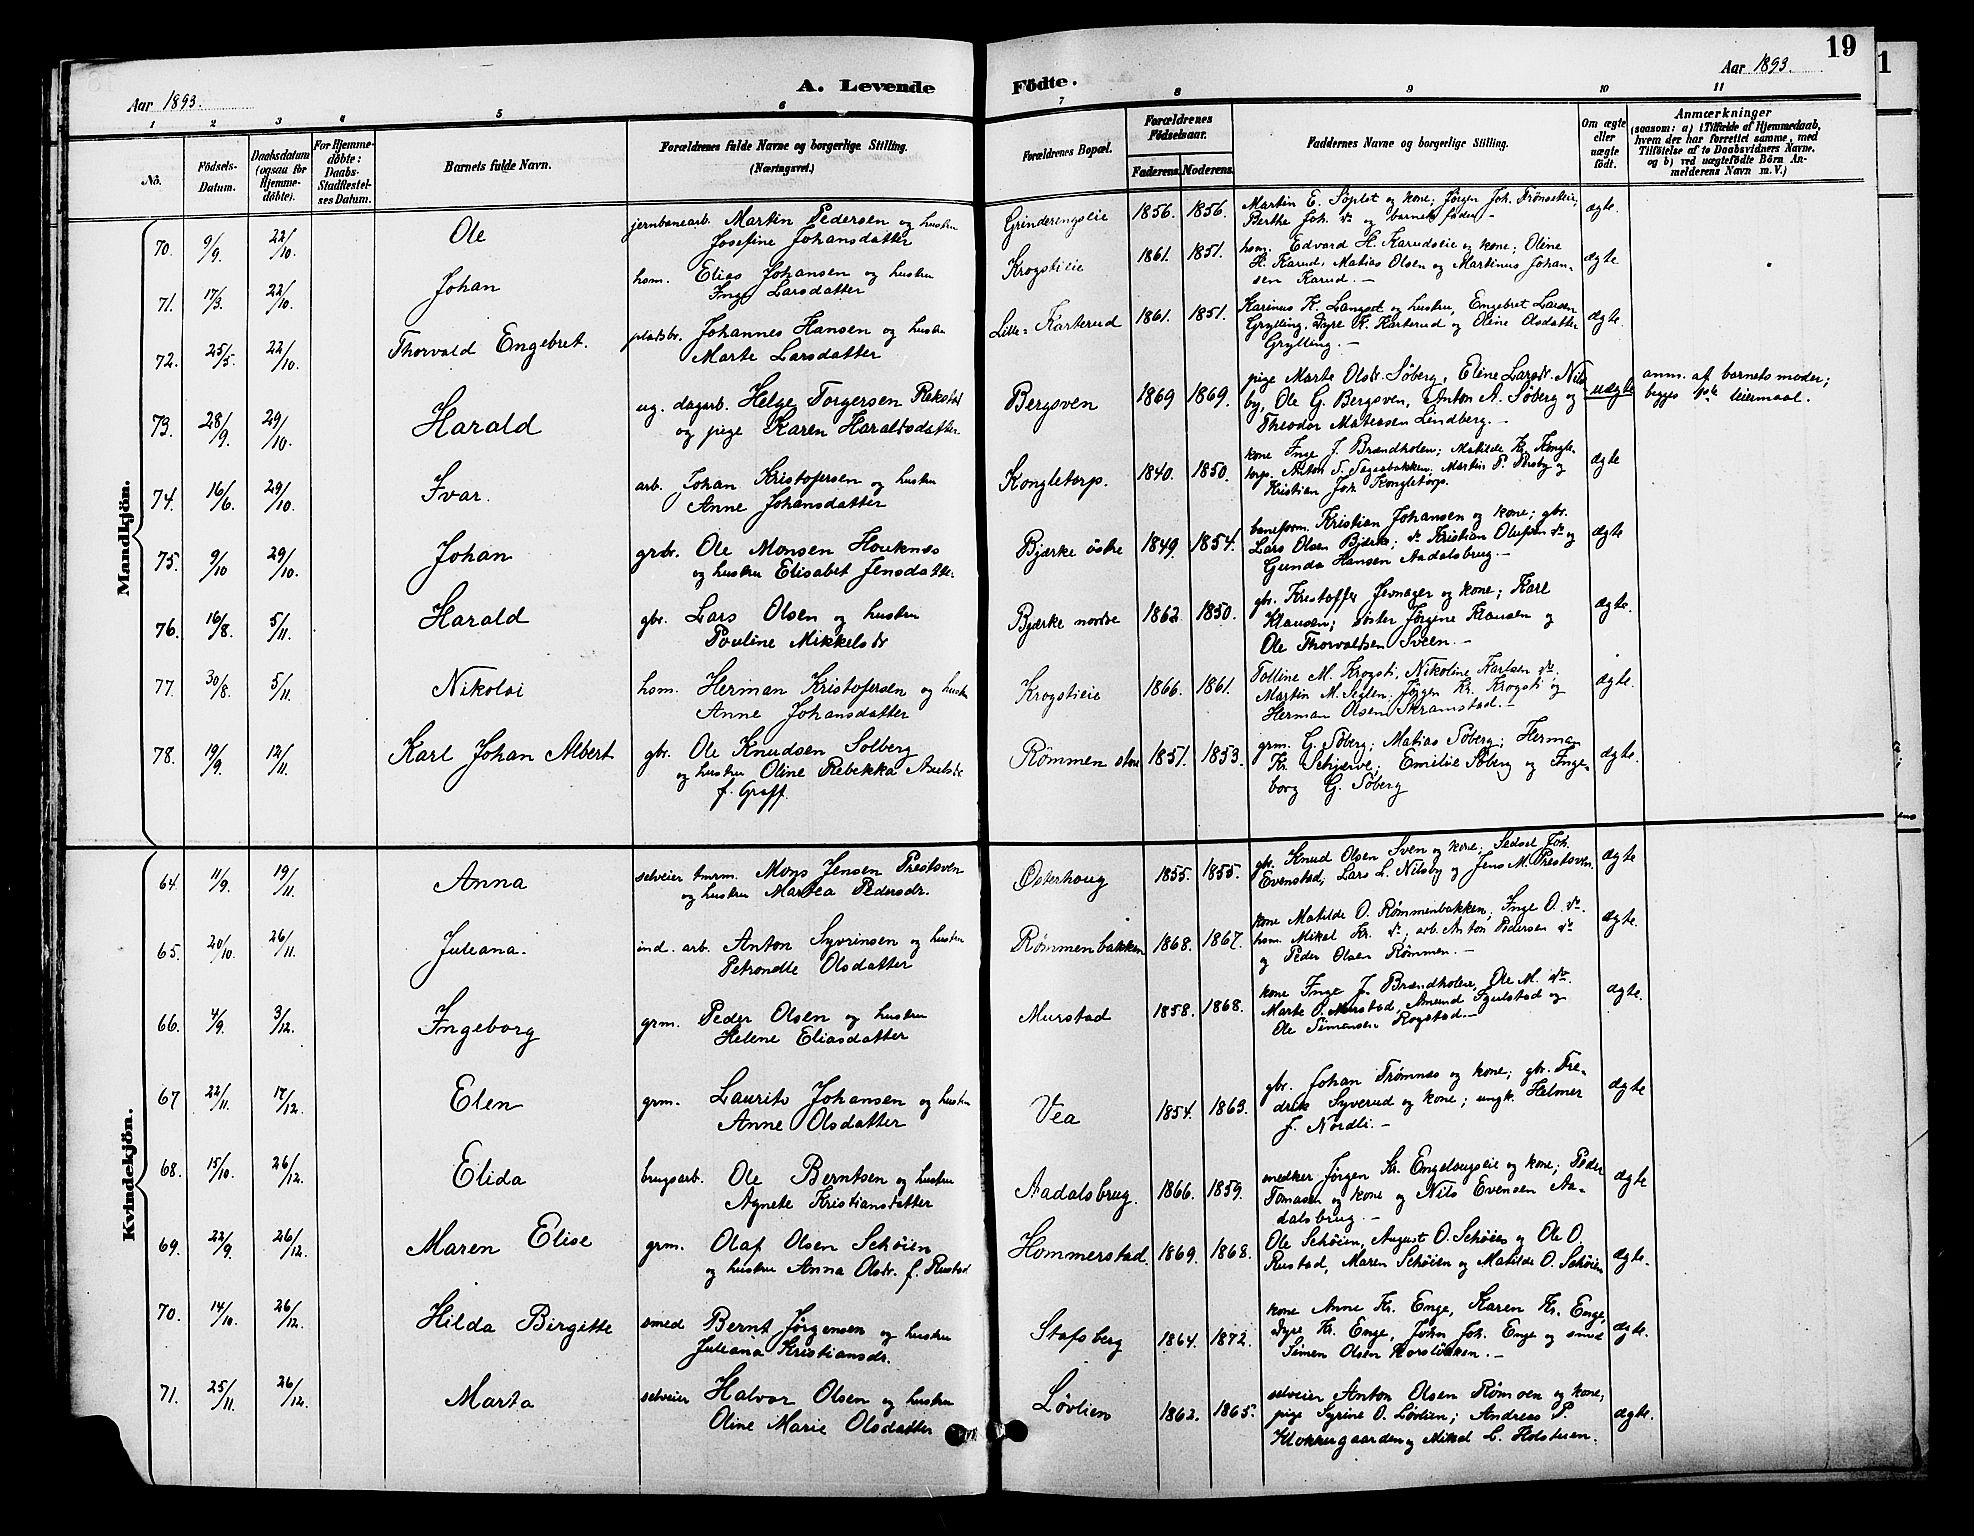 19
Aar 1893.
A. Levende Födte.
Aar 1893.
1 2 3 4 5 6 7 8 9 10 11
No.
Födsels-Datum.
Daabsdatum (ogsaa for Hjemmedöbte).
For Hjemmedöbte: Daabs-Stadfestelses Datum.
Barnets fulde Navn.
Forældrenes fulde Navne og borgerlige Stilling. (Næringsvei.)
Forældrenes Bopæl.
Forældrenes Födselsaar.
Faderens. Moderens.
Faddernes Navne og borgerlige Stilling.
Om ægte eller uægte födt.
Anmærkninger
(saasom: a) i Tilfælde af Hjemmedaab, hvem der har forrettet samme, med Tilföielse af to Daabsvidners Navne, og b) ved uægtefödte Börn Anmelderens Navn m. V.)
Mandkjön.
70. 9/9. 22/10. Ole jernbanearb. Martin Pedersen og hustru Grinderengseie 1856. 1856. Martin E. og kone; Jørgen Joh. ægte.
Josefine Johansdatter Berthe Joh. do og barnets fader. –
71. 17/3. 22/10. Johan hsm. Elias Johansen og hustru Krogstieie 1861. 1851. hsm. Edvard H. Karudseie og kone; Oline ægte
Inge Larsdatter H. Karud, Matias Olsen og Martinus Johan-
sen Karud. –
72. 25/5. 22/10. Thorvald Engebret. pladsbr. Johannes Hansen og hustru Lille-Karterud 1861. 1851. Karinus Kr. Langset og hustru, Engebret Larsen ægte.
Marte Larsdatter Grylling, Dyre K. Karterud og Oline Olsdatter
Grylling. –
73. 28/9. 29/10. Harald ug. dagarb. Helge Torgersen Rakstad Bergsven 1869 1869. pige Marte Olsdr. Søberg, Eline Larsdr. Nils- uægte anm. af barnets moder;
og pige Karen Haraldsdatter. by, Ole G. Bergsven, Anton A. Søberg og begges 1ste leiermaal.
Theodor Matessen Lindberg. –
74. 16/6. 29/10. Ivar. arb. Johan Kristofersen og hustru Kongletorp. 1840. 1850. kone Inge J. Brændholen; Matilde Kr. Kongle- ægte
Anne Johansdatter torp. Anton S. Martin P. og
Kristian Joh. Kongletorp.
75. 9/10 29/10. Johan grbr. Ole Monsen Houknes Bjærke østre 1849. 1854. baneform. Kristian Johansen og kone; gbr. ægte
og hustru Elisabet Jensdatter. Lars Olsen Bjærke; do Kristian Olufsen do og
Gunda Hansen Aadalsbrug. –
76. 16/8. 5/11. Harald gbr. Lars Olsen og hustru Bjærke nordre 1862 1850. gbr. Kristoffer Jevnager og kone; Karl ægte.
Pouline Mikkelsdr Klausen; søster Jørgine Klausen og
Ole Thorvaldsen Sveen. –
77. 30/8. 5/11. Nikolai hsm. Herman Kristofersen og hustru Krogstieie 1866. 1861. Tolline M. Krogsti, Nikoline Karlsen do; ægte.
Anne Johansdatter Martin M. Seglen. Jørgen Kr. Krogsti og
Herman Olsen Skramstad. –
78. 19/9. 12/11. Karl Johan Albert gbr. Ole Knudsen Solberg Rømmen store 1851. 1853. grm. G. Søberg; Matias Søberg; Herman ægte.
og hustru Oline Rebekka Axelsdr Kr. Schjærve; Emilie Søberg og Inge-
f. Graff. borg G. Søberg
Kvindekjön.
64. 11/9. 19/11. Anna selveier tmrm. Mons Jensen Prestsven Østerhoug 1855. 1855. gbr. Knud Olsen Sven og kone; Sedsel Joh. ægte
og hustru Martea Pedersdr. Evenstad; Lars L. Nilsby og Jens M. Prestsven.
65. 20/10. 26/11. Juliana. ind. arb. Anton Syvrinsen og hustru Rømmenbakken 1868. 1867. kone Matilde O. Rømmenbakken; Inge O. do. ægte
Petronelle Olsdatter hsm. Mikal Kr. do; arb. Anton Pedersen do
og Peder Olsen Rømmen. –
66. 4/9. 3/12. Ingeborg grm. Peder Olsen og hustru Murstad 1858. 1868. kone Inge J. Brændholen, Ole M. do. ægte.
Helene Eliasdatter Marte P. Murstad, Amund Fjulstad og
Ole Simensen Rogstad. –
67 22/11. 17/12. Elen grm. Laurits Johansen og hustru Vea 1854. 1863. gbr. Johan Trømnes og kone; gbr. Fre- ægte
Anne Olsdatter drik Syverud og kone; ungk. Helmer
J. Nordli. –
68. 15/10. 26/12. Elida brugsarb. Ole Berntsen og hustru Aadalsbrug. 1866. 1859. snedker Jørgen Kr. Engelaugseie og kone; Peder ægte
Agnete Kristiansdatter Tomasen og kone og Nils Evensen Aa-
dalsbrug. –
69. 22/9. 26/12. Maren Elise grm. Olaf Olsen Schøien Hommerstad. 1869. 1868. Ole Schøien, August O. Schøien og Ole O. ægte.
og hustru Anna Olsdr. f. Rustad Rustad, Maren Schøien og Matilde O. Schøien
70. 14/10. 26/12. Hilda Birgitte smed Bernt Jørgensen og hustru Stafsberg 1864. 1872. kone Anne Kr. Enge, Karen Kr. Enge, ægte.
Juliana Kristiansdr. Dyre Kr. Enge, Johan Joh. Enge og smed
Simen Olsen Korsløkken. –
71. 25/11. 26/12. Marta selveier Halvor Olsen og hustru Løvlien 1862. 1865. selveier Anton Olsen Rømoen og kone, ægte.
Oline Marie Olsdatter pige Syrine O. Løvlien; Andreas P.
Klokkergaarden og Mikal L. Holstuen.